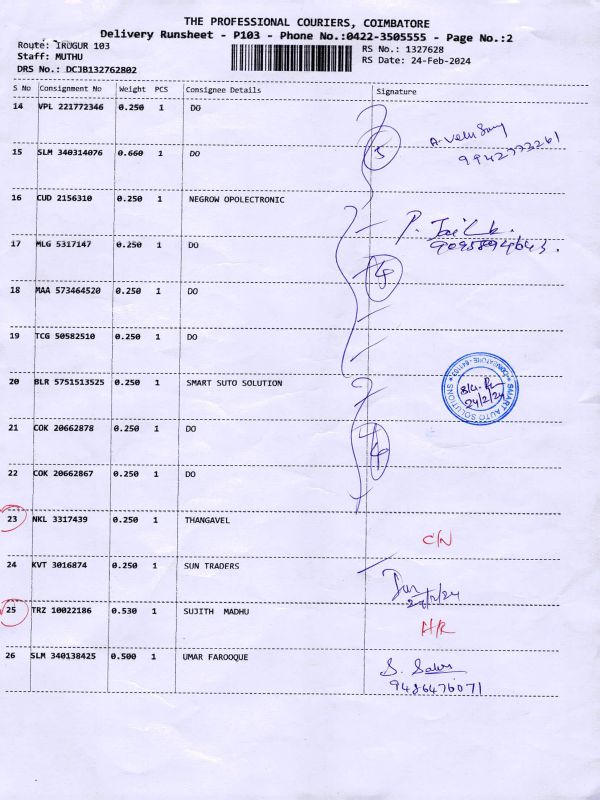 THE PROFESSIONAL COURIERS, COIMBATORE
Delivery Runsheet - P103 - Phone No.:0422-3505555 - Page No.:2
Route: IRUGUR 103
RS No.: 1327628
Staff: MUTHU
RS Date: 24-Feb-2024
DRS No.: DCJB132762802
S No Consignment No Weight PCS Consignee Details Signature
14 VPL 221772346 0.250 1 DO
15 SLM 340314076 0.660 1 DO
5
9942773261
16 CUD 2156310 0.250 1 NEGROW OPOLECTRONIC
17 MLG 5317147 0.250 1 DO
4
18 MAA 573464520 0.250 1 DO
19 TCG 50582510 0.250 1 DO
20 BLR 5751513525 0.250 1 SMART SUTO SOLUTION
SMART AUTO SOLUTIONS
24/2/24
21 COK 20662878 0.250 1 DO
4
22 COK 20662867 0.250 1 DO
23 NKL 3317439 0.250 1 THANGAVEL
C/N
24 KVT 3016874 0.250 1 SUN TRADERS
25 TRZ 10022186 0.530 1 SUJITH MADHU
A/R
26 SLM 340138425 0.500 1 UMAR FAROOQUE
9486476071